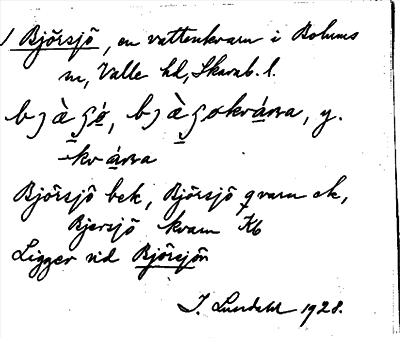 1 Björsjö, en vattenkvarn i Bolums
sn, Valle hd, Skarab. l.
bjà̠ʂó̠, bjà̠ʂokvá̠rna, y.
-kvá̠rna
Björsjö bek, Björsjö qvarn ek,
Bjersjö kvarn Kb
Ligger vid Björsjön
J. Lundahl 1928.